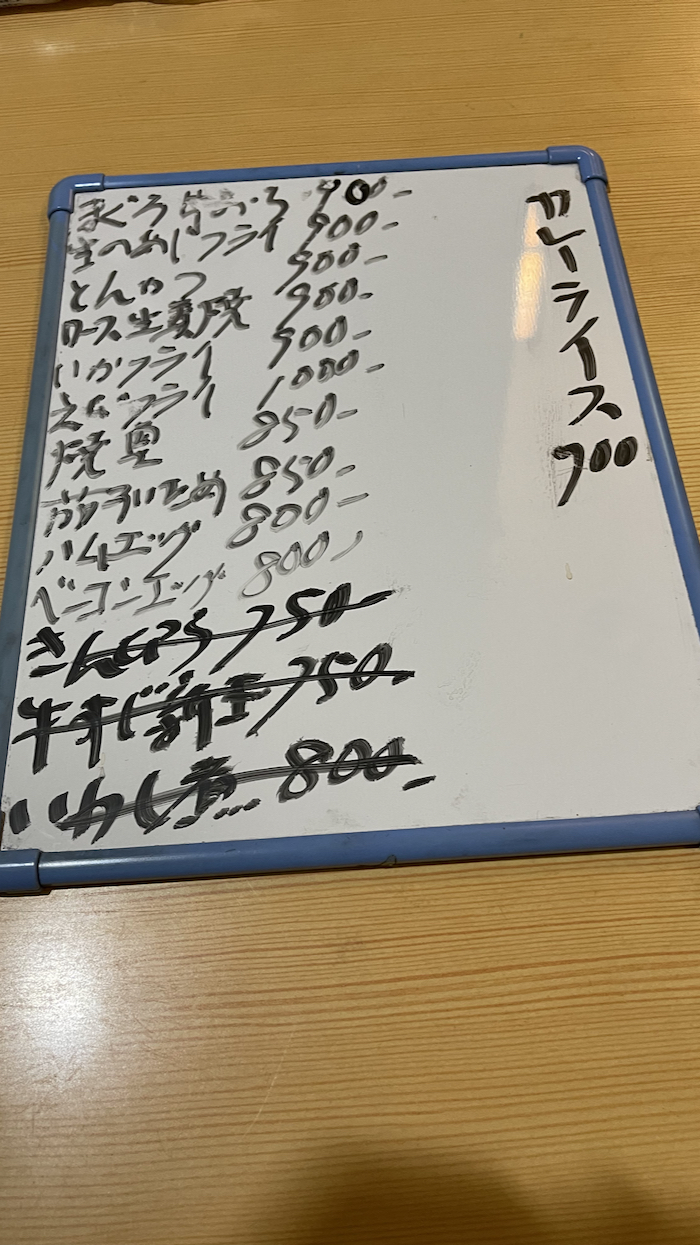 まぐろ 900-
生のあじフライ 900-
とんかつ 900-
ロース生姜焼 900-
いかフライ 900-
えびフライ 1000-
焼魚 850-
茄子いため 850-
ハムエッグ 800-
ベーコンエッグ 800-
750-
牛すじ 750-
いわし煮 800-
カレーライス
700